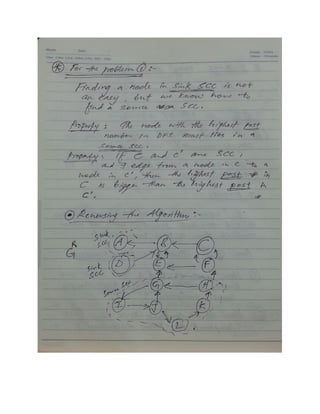 For the problem ① :-
Finding a node in sink SCC is not
an easy, but we know how to
find a source SCC.
Property : The node with the highest post
number in DFS must lies in a
source SCC.
Property : If C and C' are SCC,
and ∃ edge from a node in C to a
node in C', then the highest post # in
C is bigger than the highest post in
C'.
Reversing the Algorithm :-
Sink
SCC A B C
G^R
D E F
Sink
SCC
Source SCC G H
I J K
L